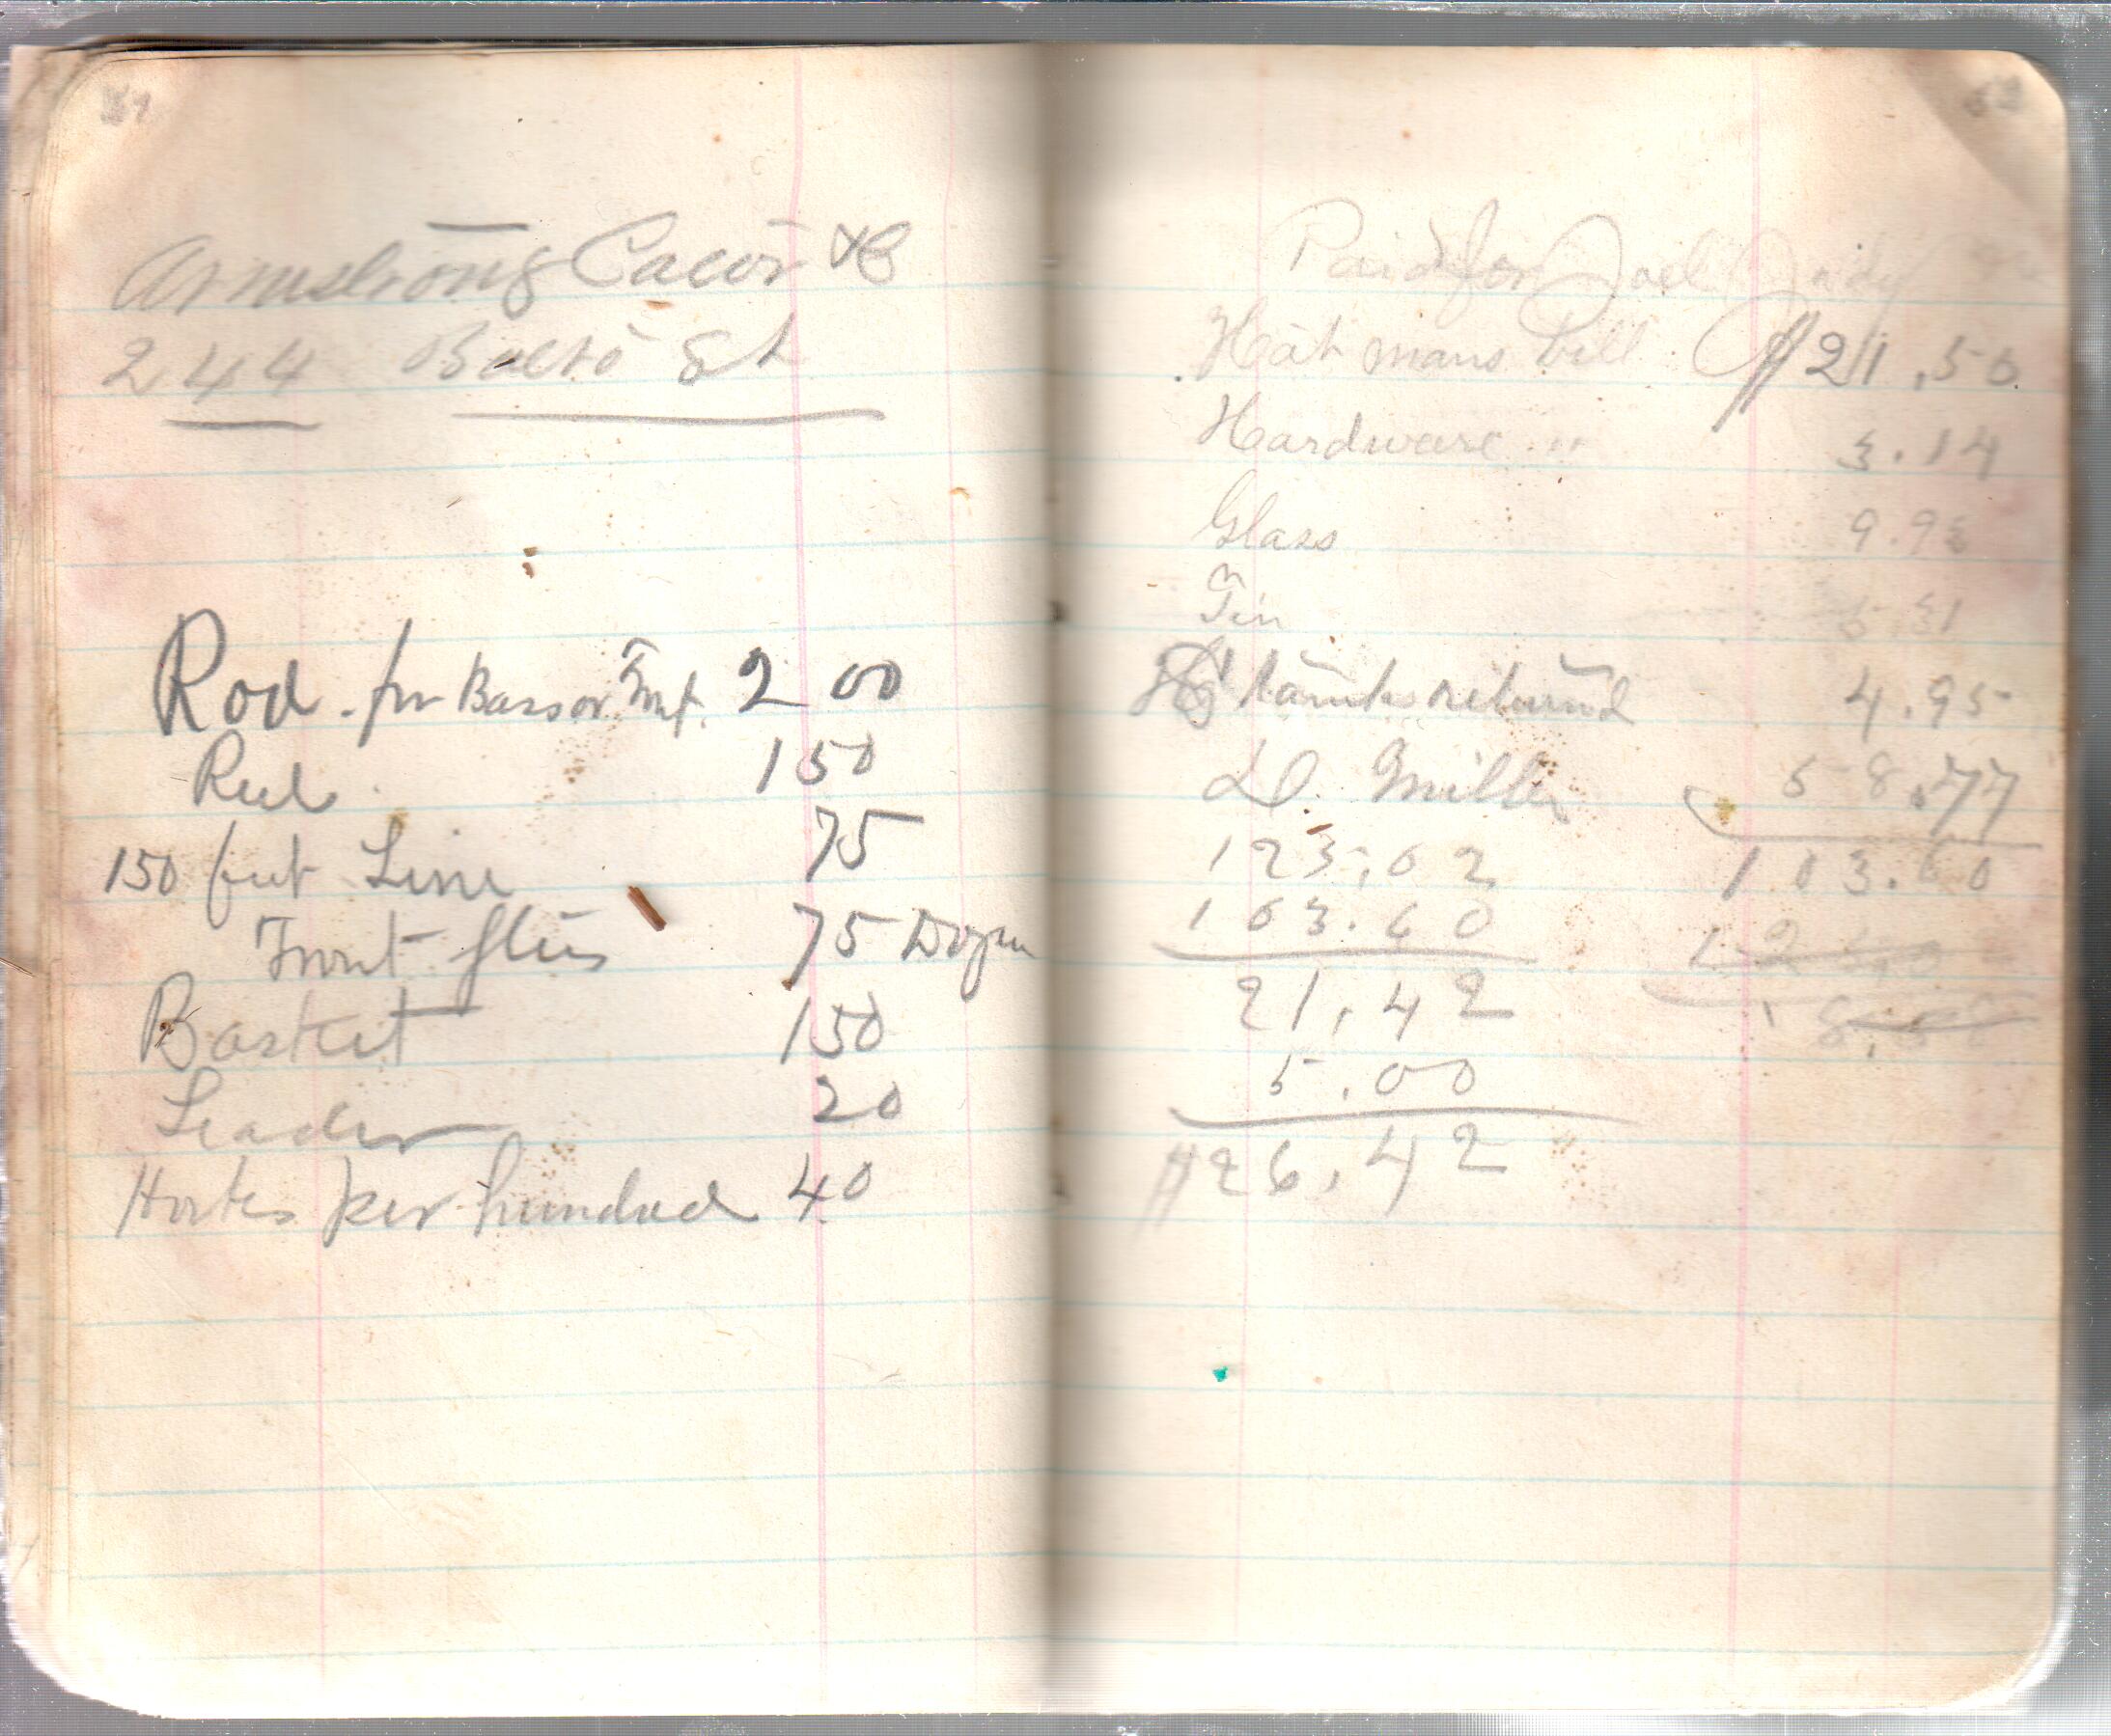 Armstrong Cator & C
244 Balto St
Rod. for Bass or Trout. 2 00
Reel. 150
150 feet Line 75
Trout flies 75 Dozen
Basket 150
Leader 20
Hooks per hundred 40
Paid for Joel
Hat mans bill. $21.50
Hardware " 3.14
Glass 9.93
Tin 5 31
returnd 4.95
D. Miller 58.77
123.02 103.60
103.60
21.42
5.00
$26.42